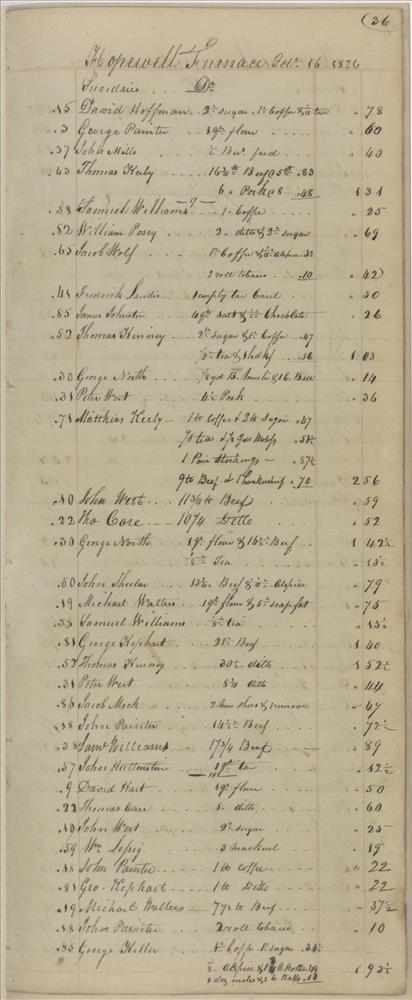 (36
Hopewell Furnace Octr. 16 1826
Sundries Dr
.15 David Hoffman 2 lb sugar 1 lb Coffe & tea " 78
.3 George Painter 19 lb flour " 60
.37 John Mills ½ Bu. feed " 40
.43 Thomas Keely 16¾ lb Beef @ 5 .83
6 " Pork @ 8 .48 1 31
.88 Samuel Williams 1 " Coffe " 25
—7—
.82 William Posey 2 " ditto & 2 lb sugar " 69
.65 Jacob Wolf 1 lb Coffe & Alspice .32
2 roll tobaco .10 " 42
.41 Fredrick Landis 1 empty tar barel " 50
.85 James Johnston 49 lb salt & Chocolate " 26
.52 Thomas Kenney 2 lb sugar & 1 lb Coffe .47
tea & .56 1 03
.30 George North 7/8 yd Muslin & " 14
.31 Peter Wert 4½ Pork " 36
.71 Matthias Keely 1 lb Coffee & 2 lb Sugar .47
tea .51½
1 Pair Stockings .87½
9 lb Beef & 1 .70 2 56
.10 John Wert 11¾ lb Beef " 59
.22 Tho Care 10¾ Ditto " 52
.30 George North 19 lb flour & 16½ Beef 1 42½
Tea " 15½
.50 John Sheeler 13¾ Beef & Alspice " 79
.19 Michael Walters 19 lb flour & 5 lb soap fat " 75
.38 Samuel Williams tea " 15½
.81 George Kephart 28 lb Beef 1 40
.52 Thomas Kenney 30½ ditto 1 52½
.31 Peter Wert 8¾ ditto " 44
.86 Jacob Mock 2 shoes & remove " 47
.18 John Painter 14½ lb Beef " 72½
.38 Saml Williams 17¾ Beef " 89
.57 John tea " 12½
.9 David Hart 19 lb flour " 50
.22 Thomas Care 1 ditto " 60
.10 John Wert 2 lb sugar " 25
.59 Wm 3 mackerel " 19
.18 John Painter 1 lb Coffee " 22
.81 Geo. Kephart 1 lb Ditto " 22
.19 Michael Walters 7½ lb Beef " 37½
.18 John Painter 2 roll tobaco " 10
.85 George Keller 1 lb Coffe 1 lb sugar .34½
Alspice &
1 doz 1 93½